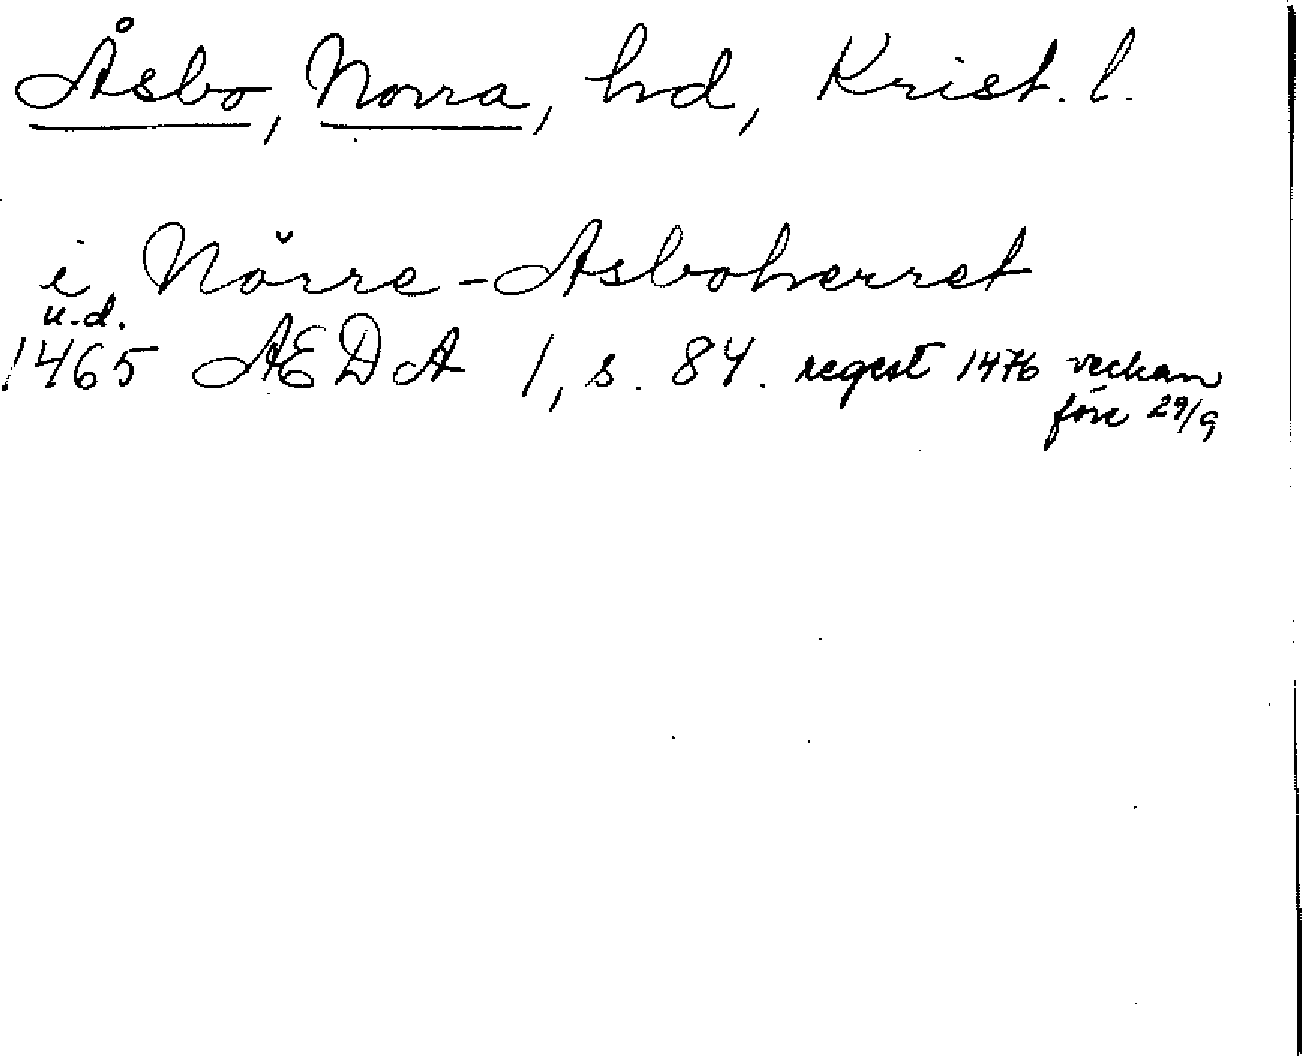 Åsbo, Norra, hd, Krist. l.
i Nörre-Asboherret
u.d.
1465 AEDA 1, s. 84. regest 1476 veckan
före 29/9